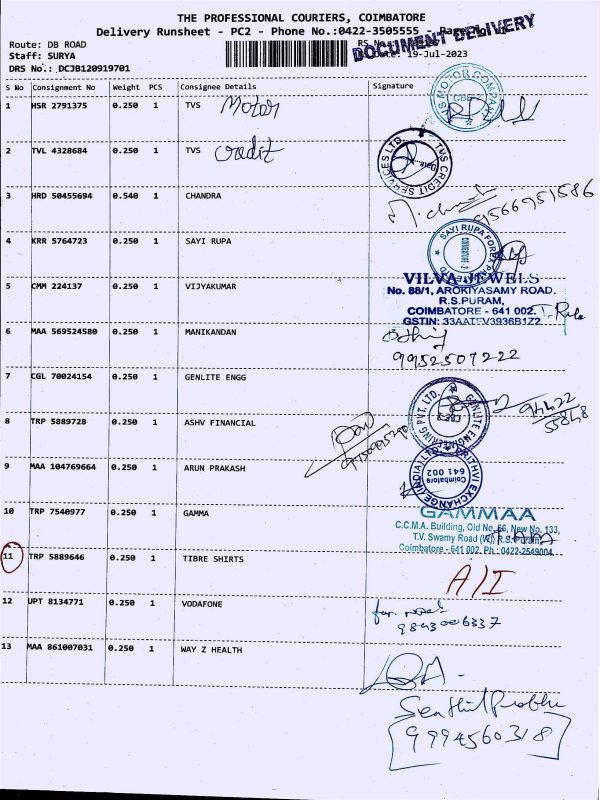 THE PROFESSIONAL COURIERS, COIMBATORE
Delivery Runsheet - PC2 - Phone No.:0422-3505555
DOCUMENT DELIVERY
Route: DB ROAD
Staff: SURYA
19-Jul-2023
DRS No.: DCJB120919701
S No Consignment No Weight PCS Consignee Details Signature
1 HSR 2791375 0.250 1 TVS Motor
TVS MOTOR COMPANY
CBE-2
2 TVL 4328684 0.250 1 TVS Credit
TVS CREDIT SERVICES LTD.
Date
3 HRD 50455694 0.540 1 CHANDRA
9566951586
4 KRR 5764723 0.250 1 SAYI RUPA
SAYI RUPA FOREX
5 CMM 224137 0.250 1 VIJYAKUMAR
VILVA JEWELS
No. 88/1, AROKIYASAMY ROAD,
R.S.PURAM,
COIMBATORE - 641 002.
GSTIN: 33AATFV3936B1Z2
6 MAA 569524580 0.250 1 MANIKANDAN
9952507222
7 CGL 70024154 0.250 1 GENLITE ENGG
GENLITE ENGINEERING PVT. LTD.
CBE-2
94422
55848
8 TRP 5889728 0.250 1 ASHV FINANCIAL
9 MAA 104769664 0.250 1 ARUN PRAKASH
PRITHVI EXCHANGE (INDIA) LTD.
Coimbatore
641 002
10 TRP 7540977 0.250 1 GAMMA
GAMMAA
C.C.M.A. Building, Old No. 66, New No. 133,
T.V. Swamy Road (W), R.S. Puram,
Coimbatore - 641 002. Ph : 0422-2549004
11 TRP 5889646 0.250 1 TIBRE SHIRTS
A/I
12 UPT 8134771 0.250 1 VODAFONE
9843006337
13 MAA 861007031 0.250 1 WAY Z HEALTH
Senthil Prabhu
9994560318